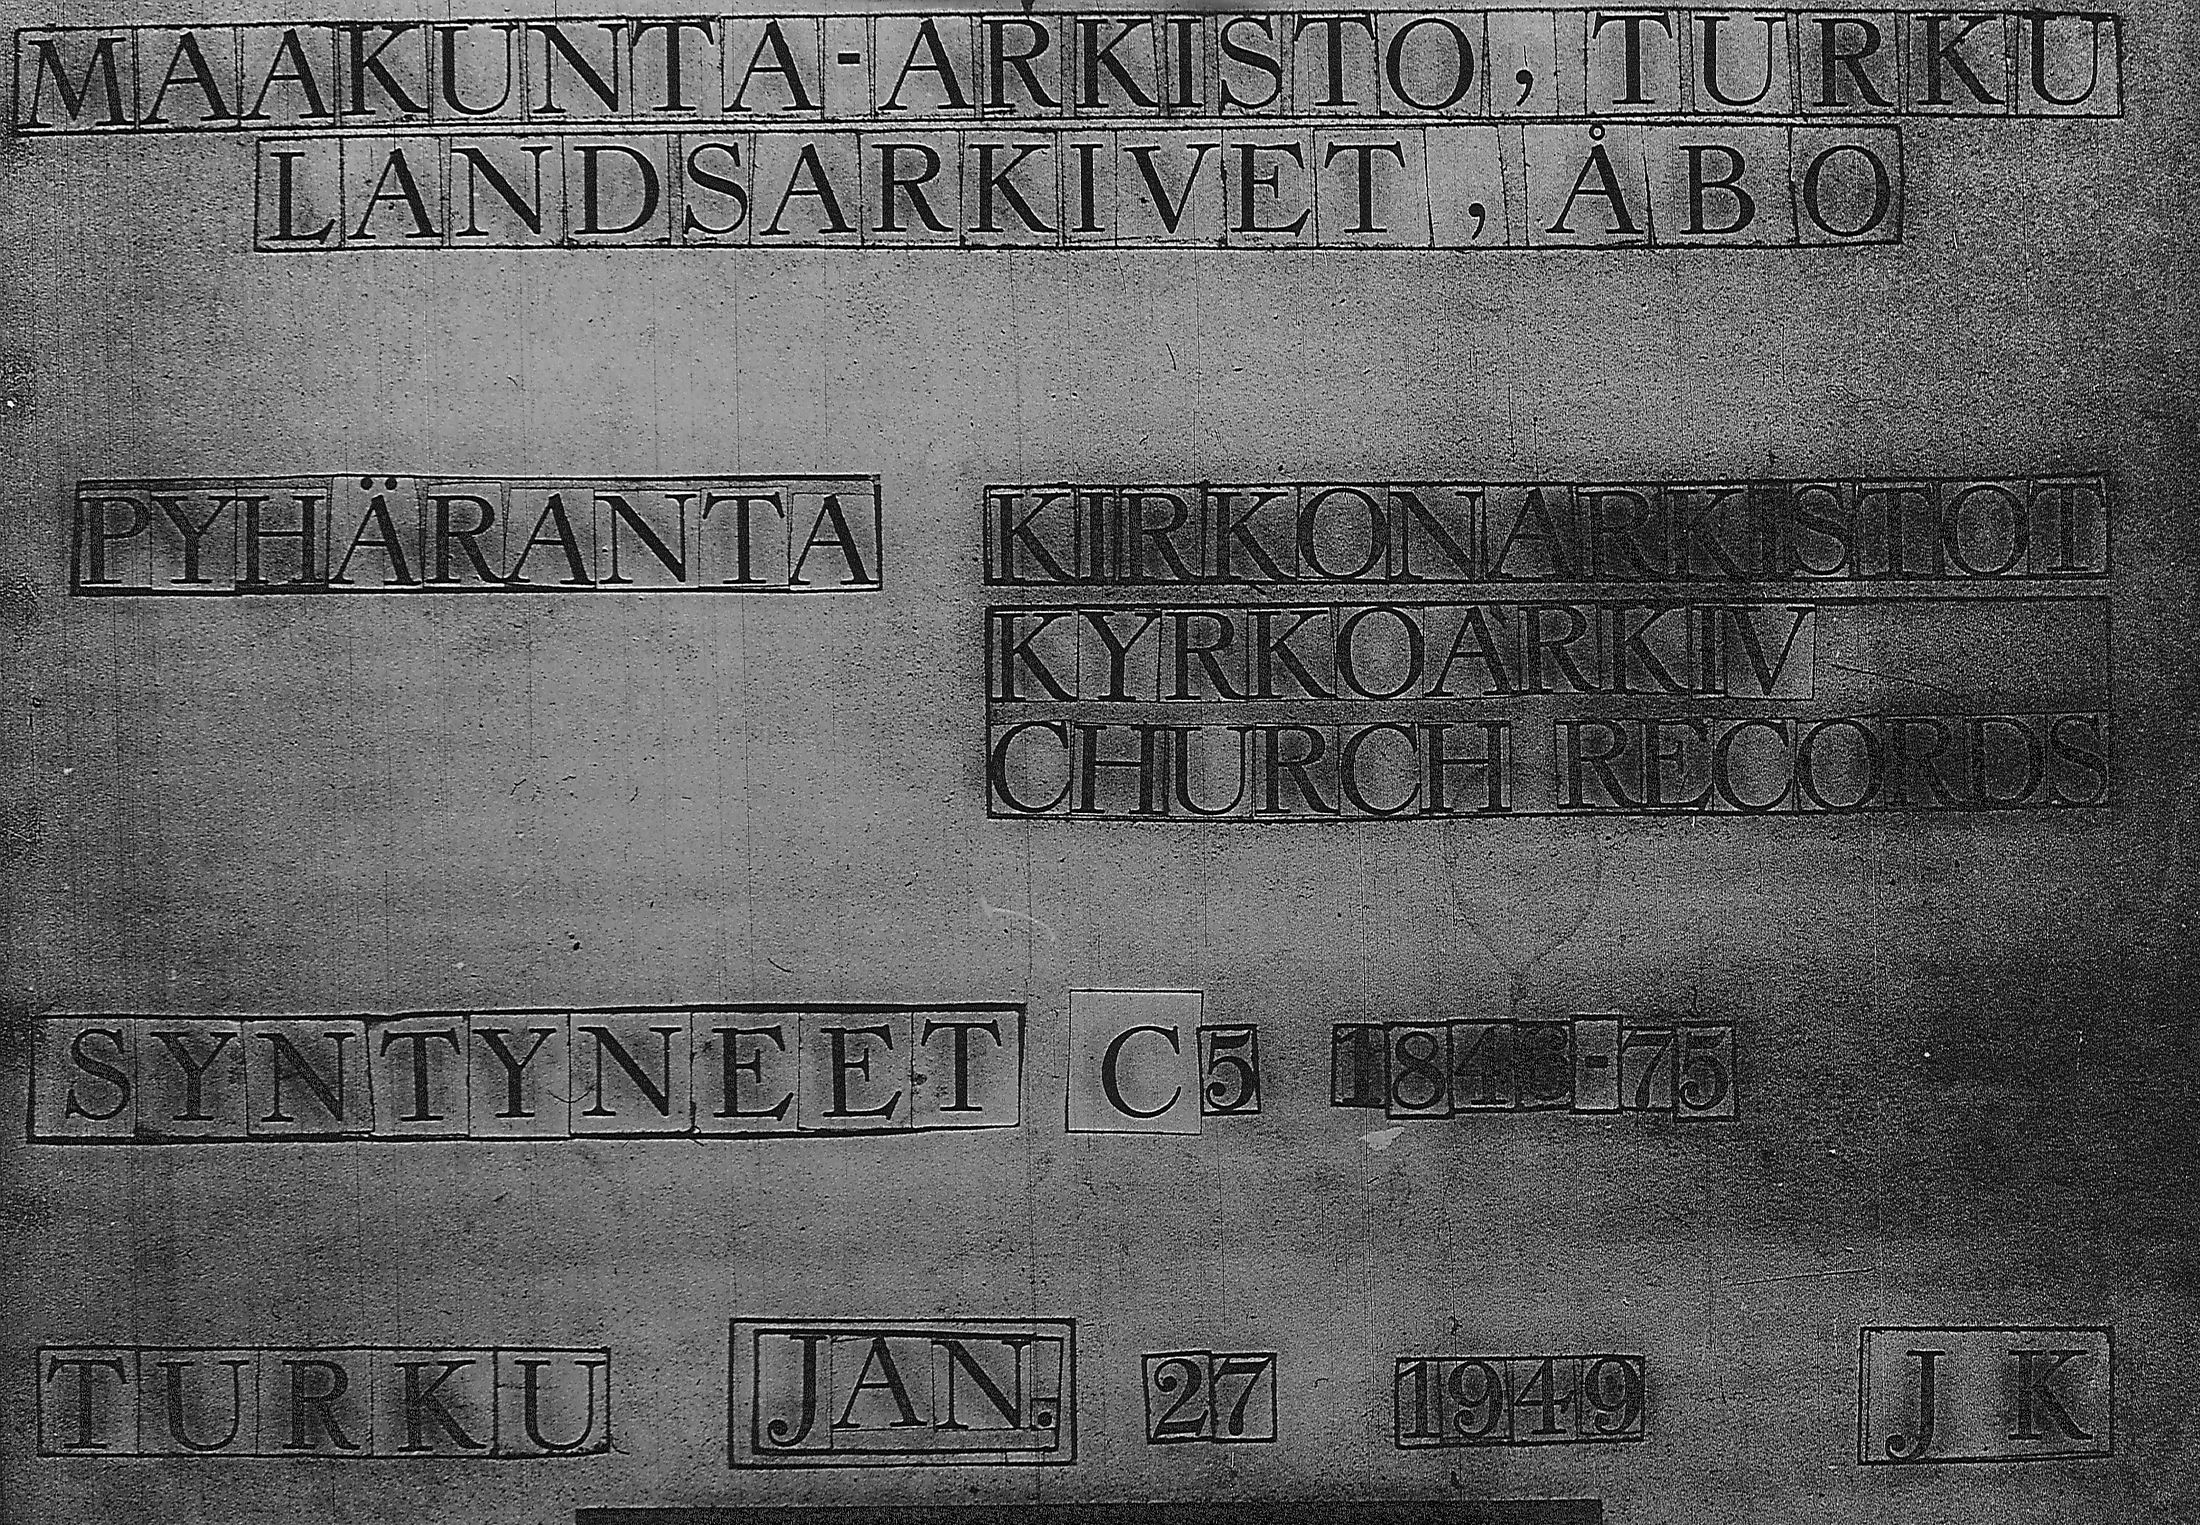 MAAKUNTA-ARKISTO, TURKU
LANDSARKIVET, ÅBO
PYHÄRANTA
KIRKONARKISTOT
KYRKOARKIV
CHURCH RECORDS
SYNTYNEET C5
TURKU JAN. 27 1949 J K